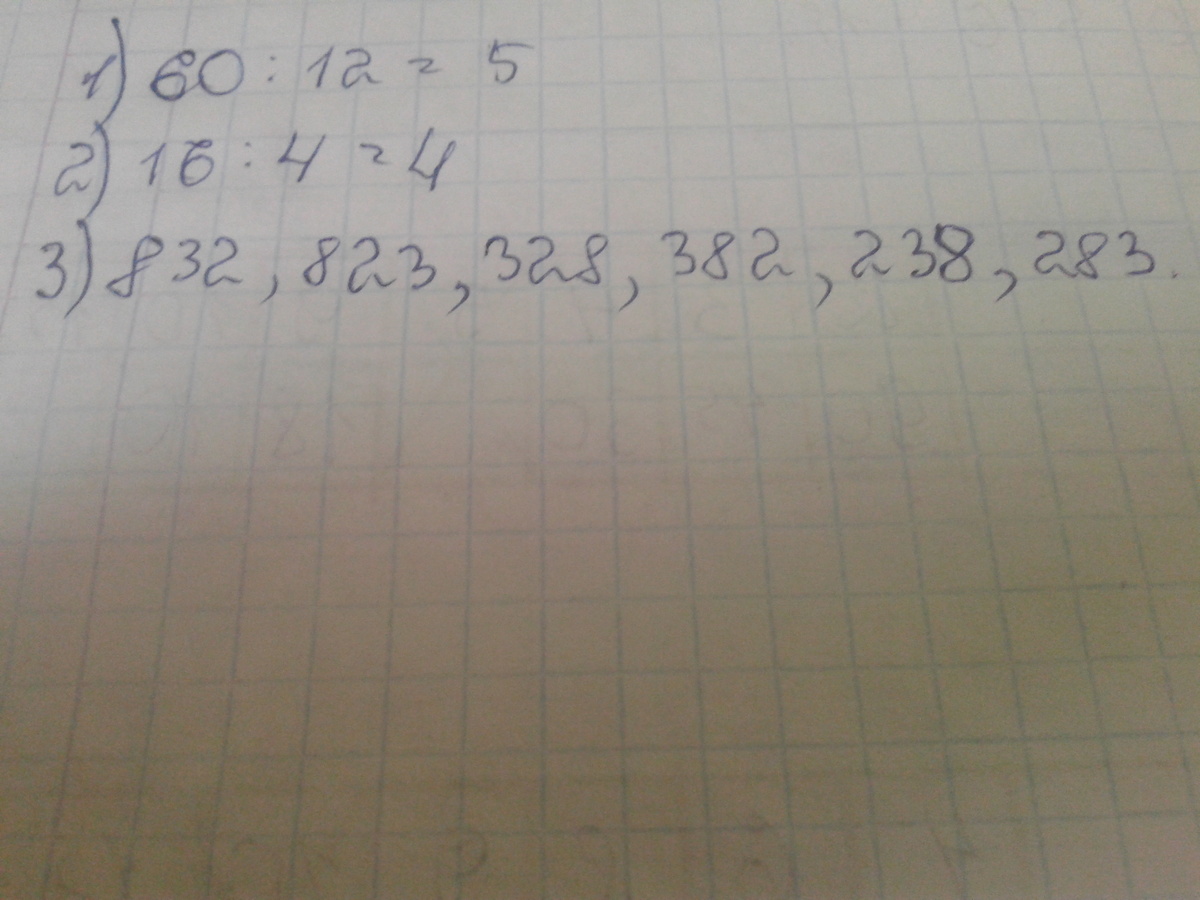 1) 60 : 12 = 5
2) 16 : 4 = 4
3) 832, 823, 328, 382, 238, 283.